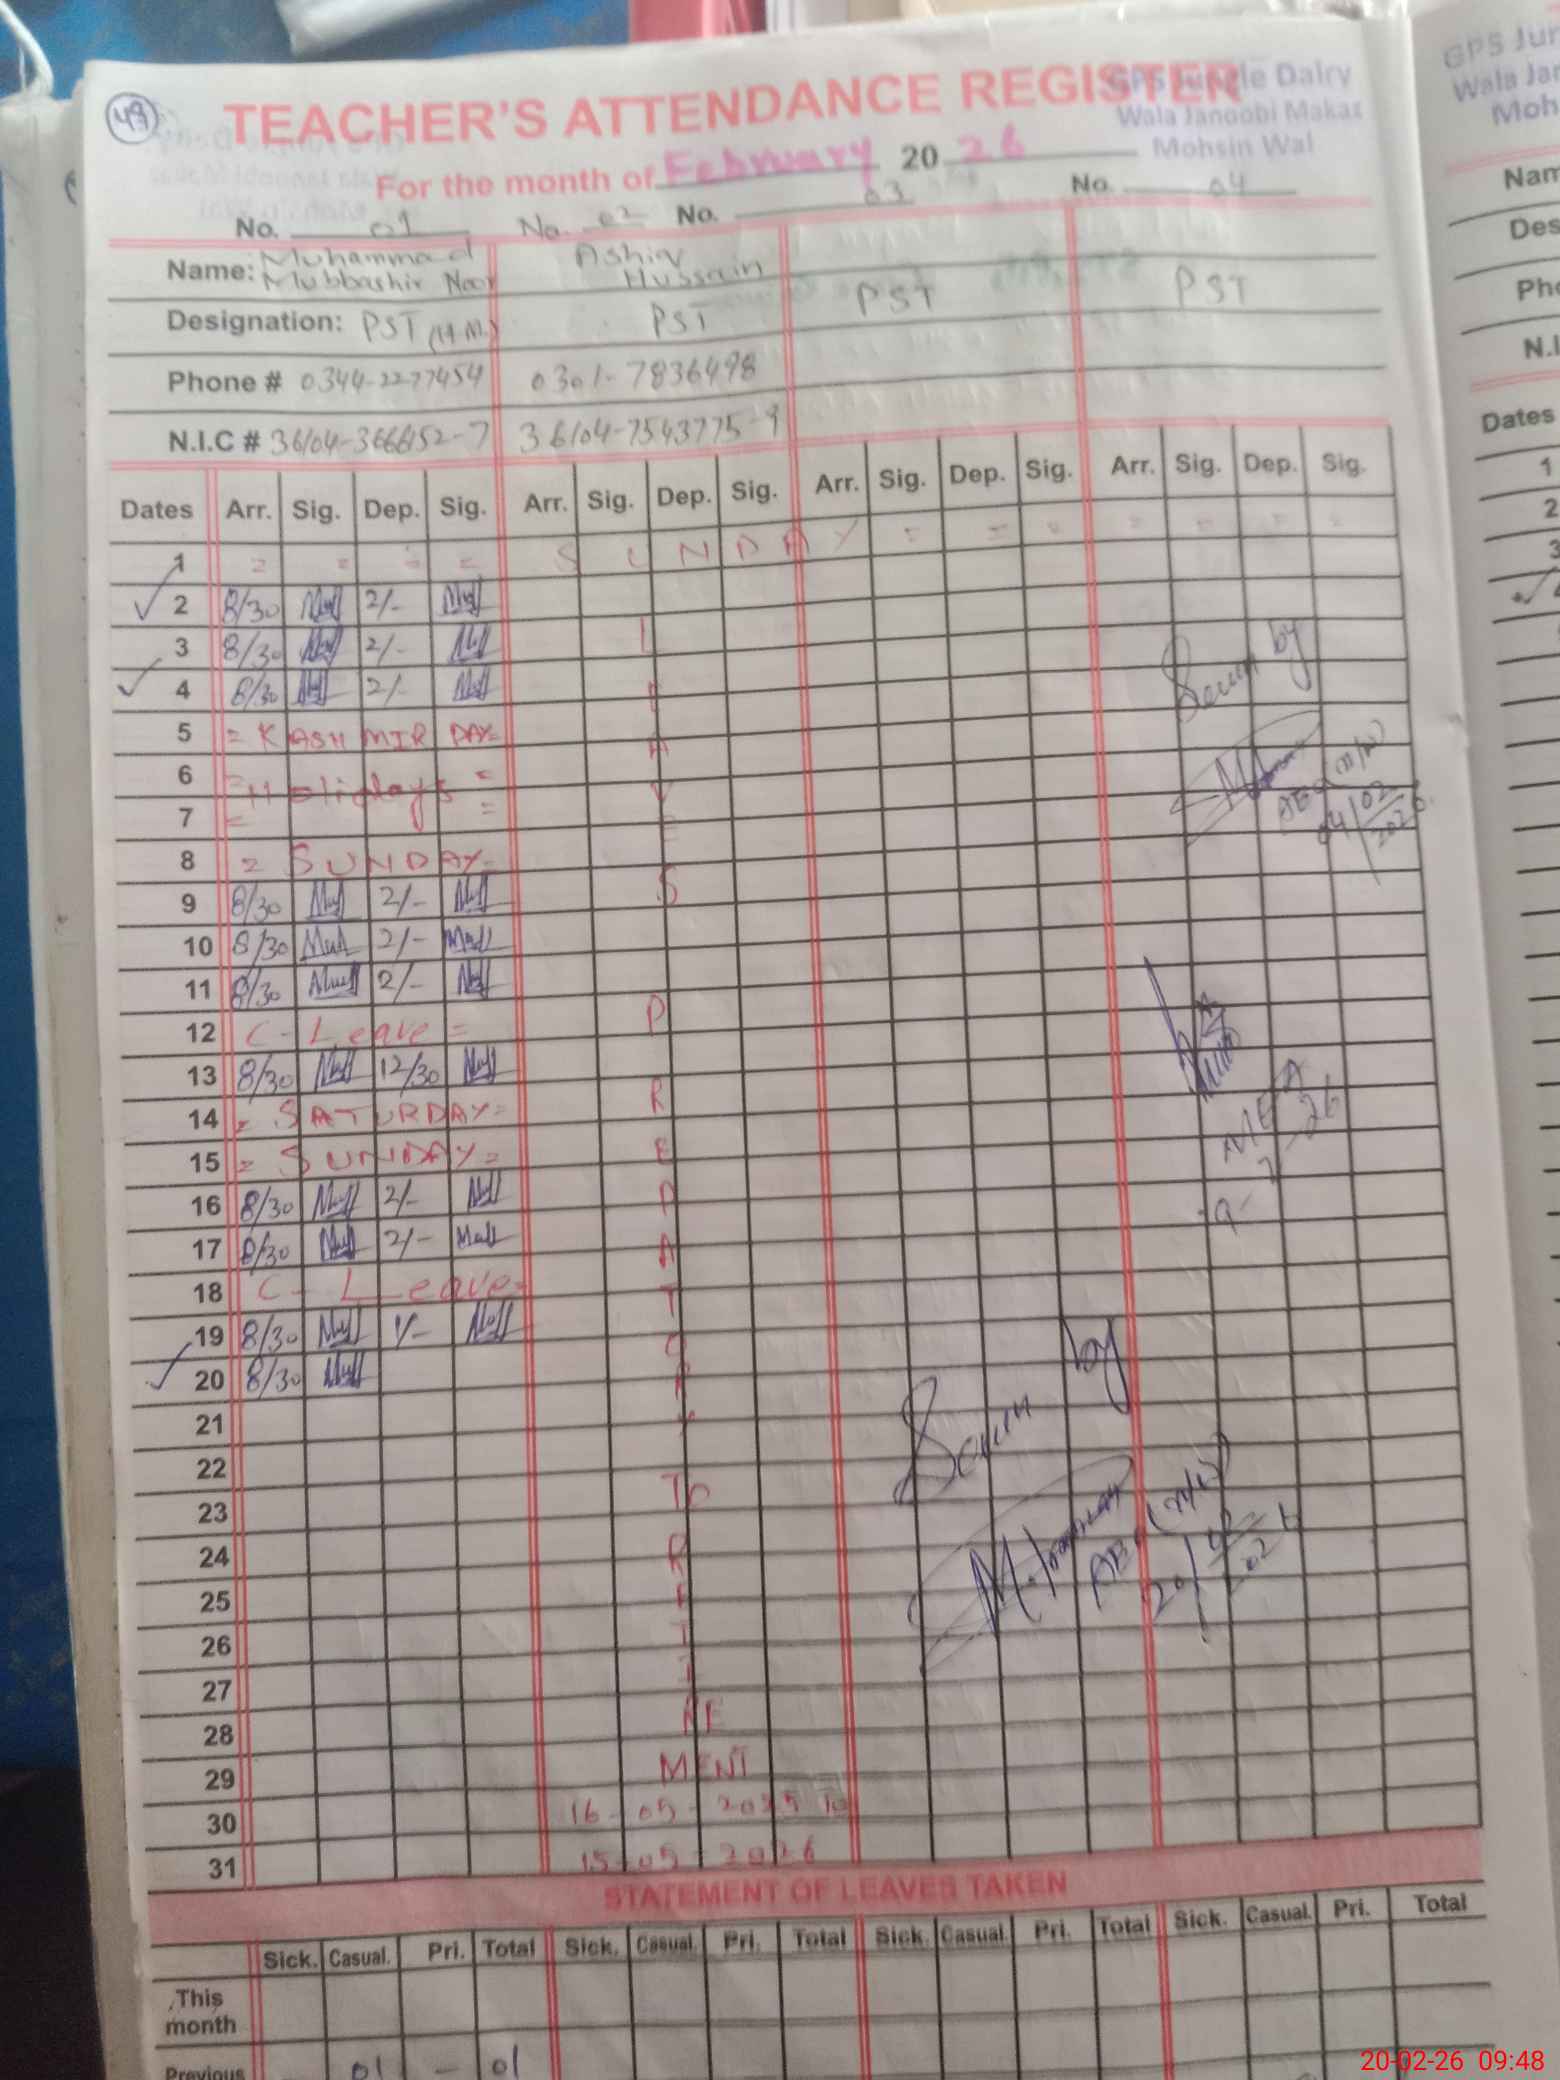 49
TEACHER'S ATTENDANCE REGISTER
GPS Jungle Dairy
Wala Janoobi Makaz
Mohsin Wal
For the month of February 2026
No. 01 No. 02 No. 03 No. 04
Name: Muhammad Mubbashir Noor Ashiq Hussain
Designation: PST (H.M.) PST PST PST
Phone # 0344-2277454 0301-7836498
N.I.C # 36104-3666152-7 36104-7543775-9
Dates Arr. Sig. Dep. Sig. Arr. Sig. Dep. Sig. Arr. Sig. Dep. Sig. Arr. Sig. Dep. Sig.
1 = = = = S U N D A Y = = = = = = =
2 8/30 2/-
3 8/30 2/-
4 8/30 2/-
5 = KASHMIR DAY=
6 = Holidays =
7 = =
8 = SUNDAY=
9 8/30 2/-
10 8/30 2/-
11 8/30 2/-
12 C-Leave =
13 8/30 12/30
14 = SATURDAY=
15 = SUNDAY=
16 8/30 2/-
17 8/30 2/-
18 C-Leave=
19 8/30 1/-
20 8/30
21
22
23
24
25
26
27
28
29
30
31
PREPARATORY TO RETIREMENT
16-05-2025 to
15-05-2026
Seen by
04/02/2026
MEA
9-2-26
Seen by
20/02/2026
STATEMENT OF LEAVES TAKEN
Sick. Casual. Pri. Total Sick. Casual. Pri. Total Sick. Casual. Pri. Total Sick. Casual. Pri. Total
This month
Previous 01 - 01
GPS Jun
Wala Jan
Moh
Nam
Des
Pho
N.I
Dates
1
2
3
20-02-26 09:48